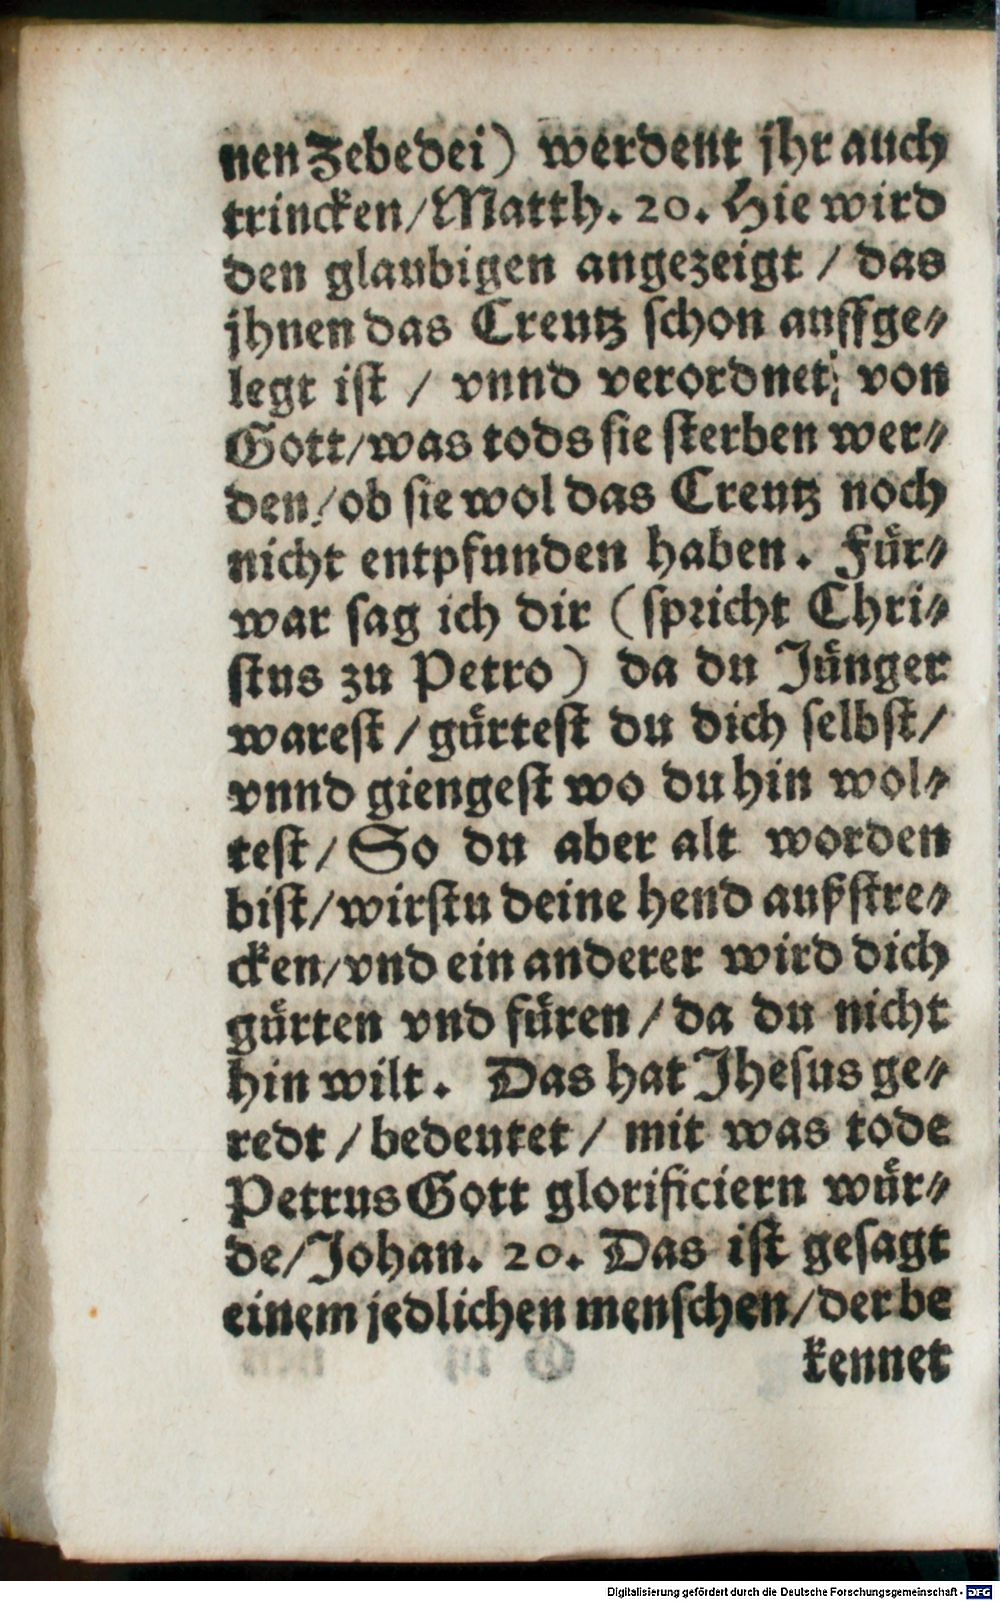 nen Zebedei) werdent jhr auch
trincken/Matth. 20. Hie wird
den glaubigen angezeigt / das
jhnen das Creutz schon auffge⸗
legt ist / vnnd verordnet; von
Gott/was tods sie sterben wer⸗
den/ob sie wol das Creutz noch
nicht entpfunden haben. Für⸗
war sag ich dir (spricht Chri⸗
stus zu Petro) da du Jünger
warest / gürtest du dich selbst/
vnnd giengest wo du hin wol⸗
test/ So du aber alt worden
bist/wirstu deine hend außstre⸗
cken/vnd ein anderer wird dich
gürten vnd füren / da du nicht
hin wilt. Das hat Jhesus ge⸗
redt / bedeutet / mit was tode
Petrus Gott glorificiern wür⸗
de/Johan. 20. Das ist gesagt
einem jedlichen menschen/der be
kennet
Digitalisierung gefördert durch die Deutsche Forschungsgemeinschaft - DFG